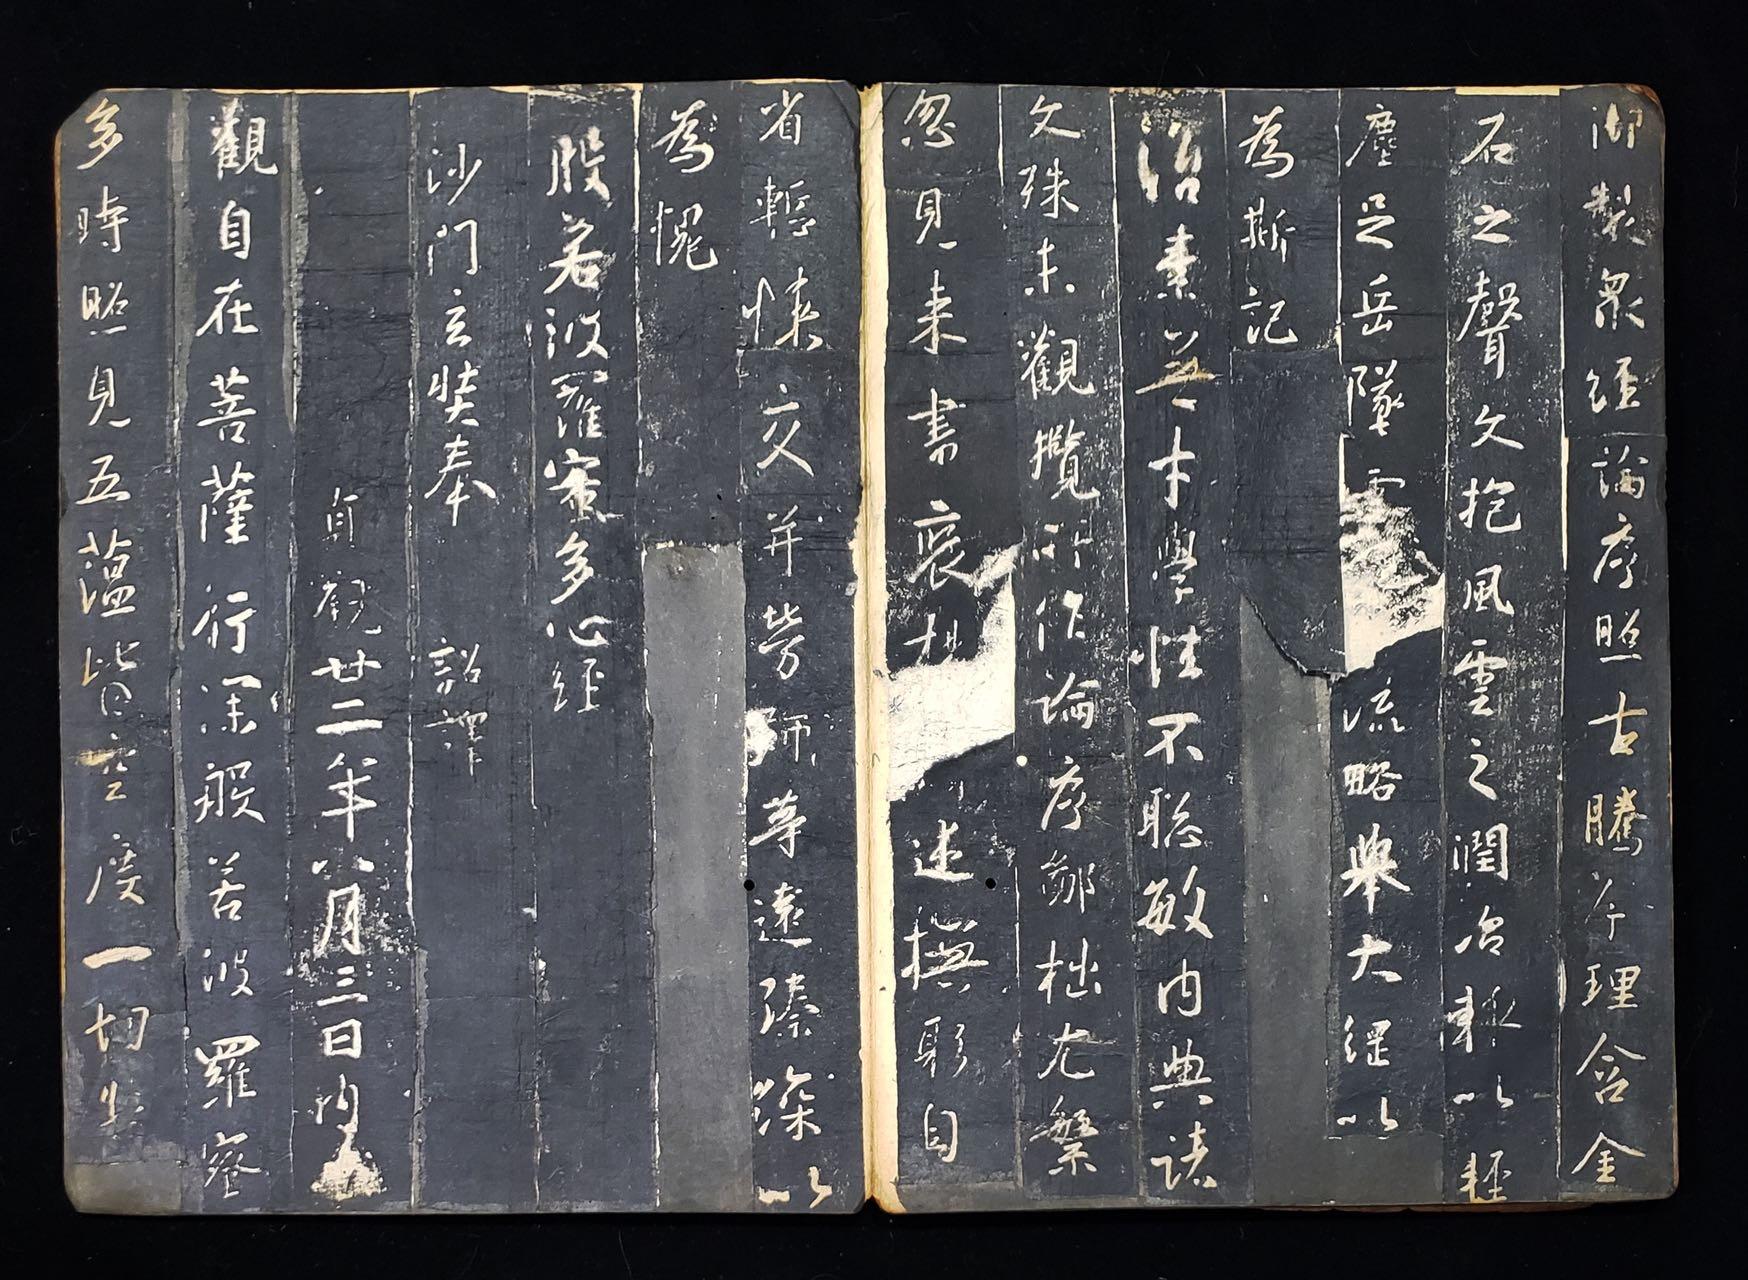 御製眾經論序照古騰今理含金
石之聲文抱風雲之潤治輒以輕
塵足岳墜流略舉大綱以
為斯記
治素無才學性不聰敏內典諸
文殊未觀覽所作論序鄙拙尤繁
忽見來書褒述撫躬自
省慙悚交并勞師等遠臻深以
為愧
般若波羅蜜多心經
沙門玄奘奉 詔譯
貞觀廿二年八月三日內
觀自在菩薩行深般若波羅蜜
多時照見五蘊皆空度一切苦